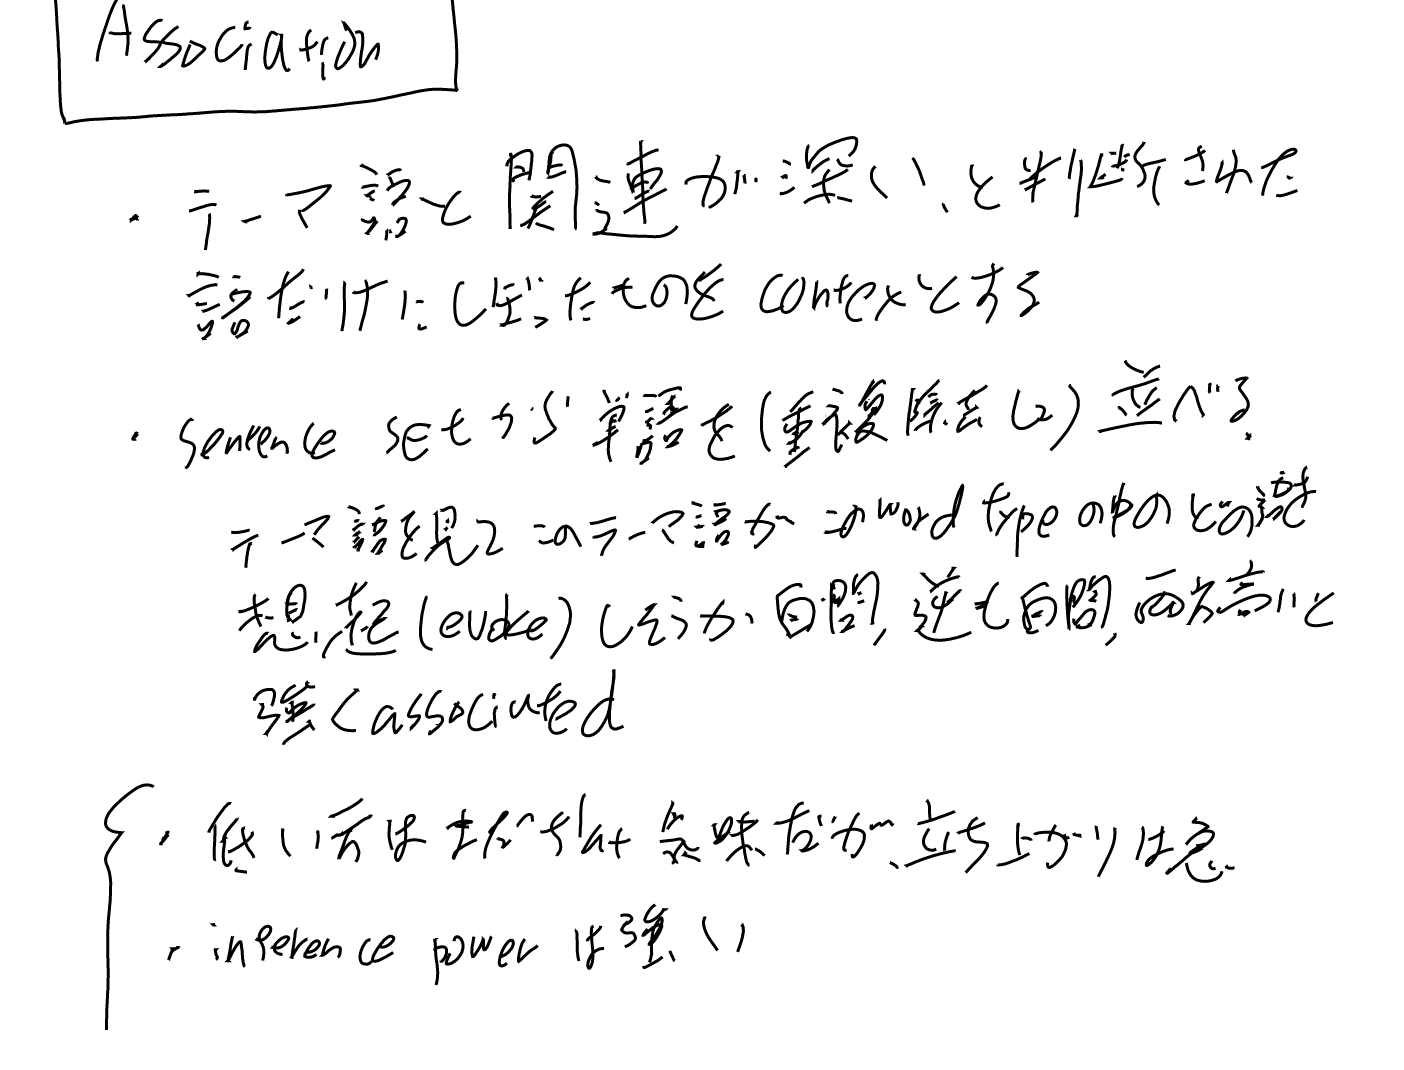 Association
・テーマ語と関連が深い、と判断された
語だけにしぼったものを contexとする
・sentence setから単語を(重複除去して)並べる.
テーマ語を見て このテーマ語が このword typeの中のどの語を
想起(evoke)しそうか 自問, 逆も自問, 両方高いと
強くassociated
・低い方はまだflat気味だが、立ち上がりは急
・inference powerは強い